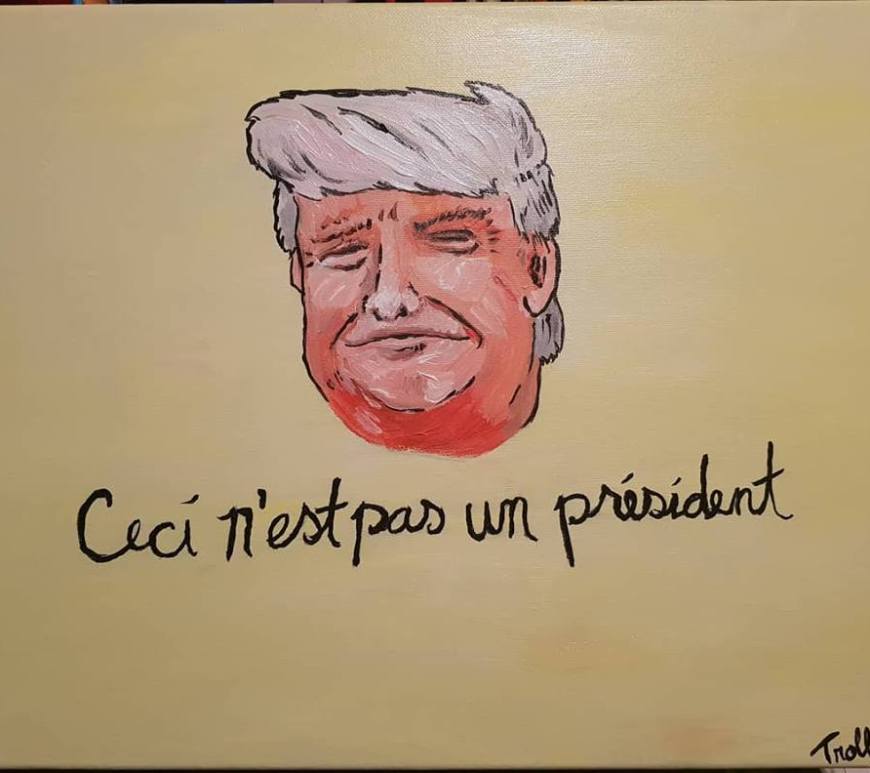 Ceci n'est pas un président
Troll